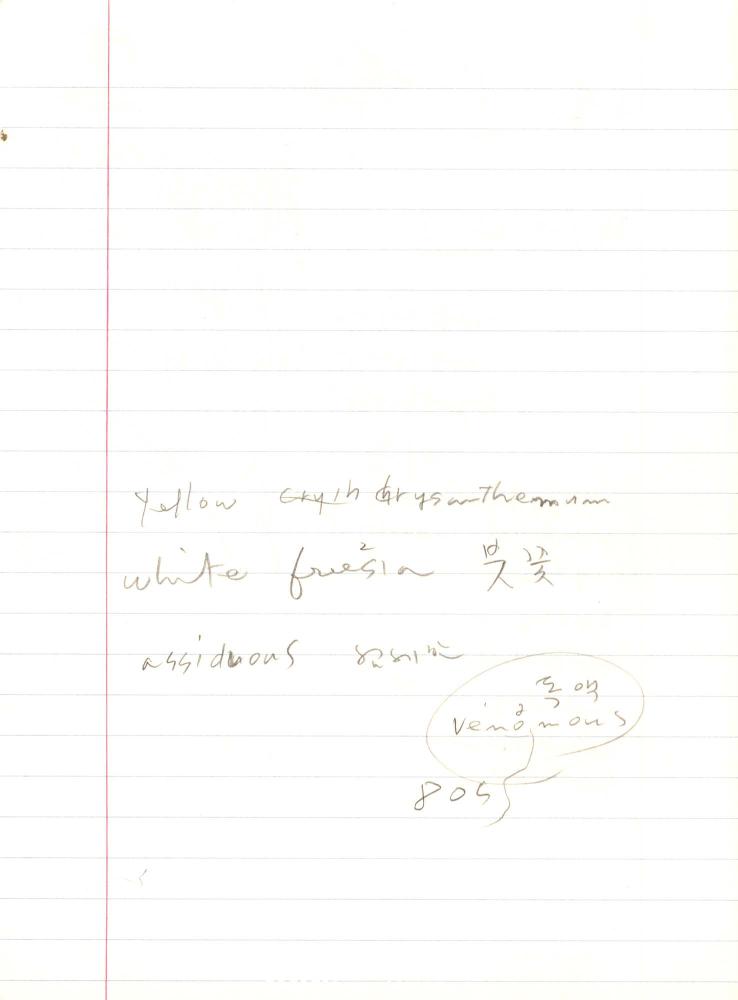 Yellow chrysanthemum
white freesia 붓꽃
assiduous
독액
venomous
805